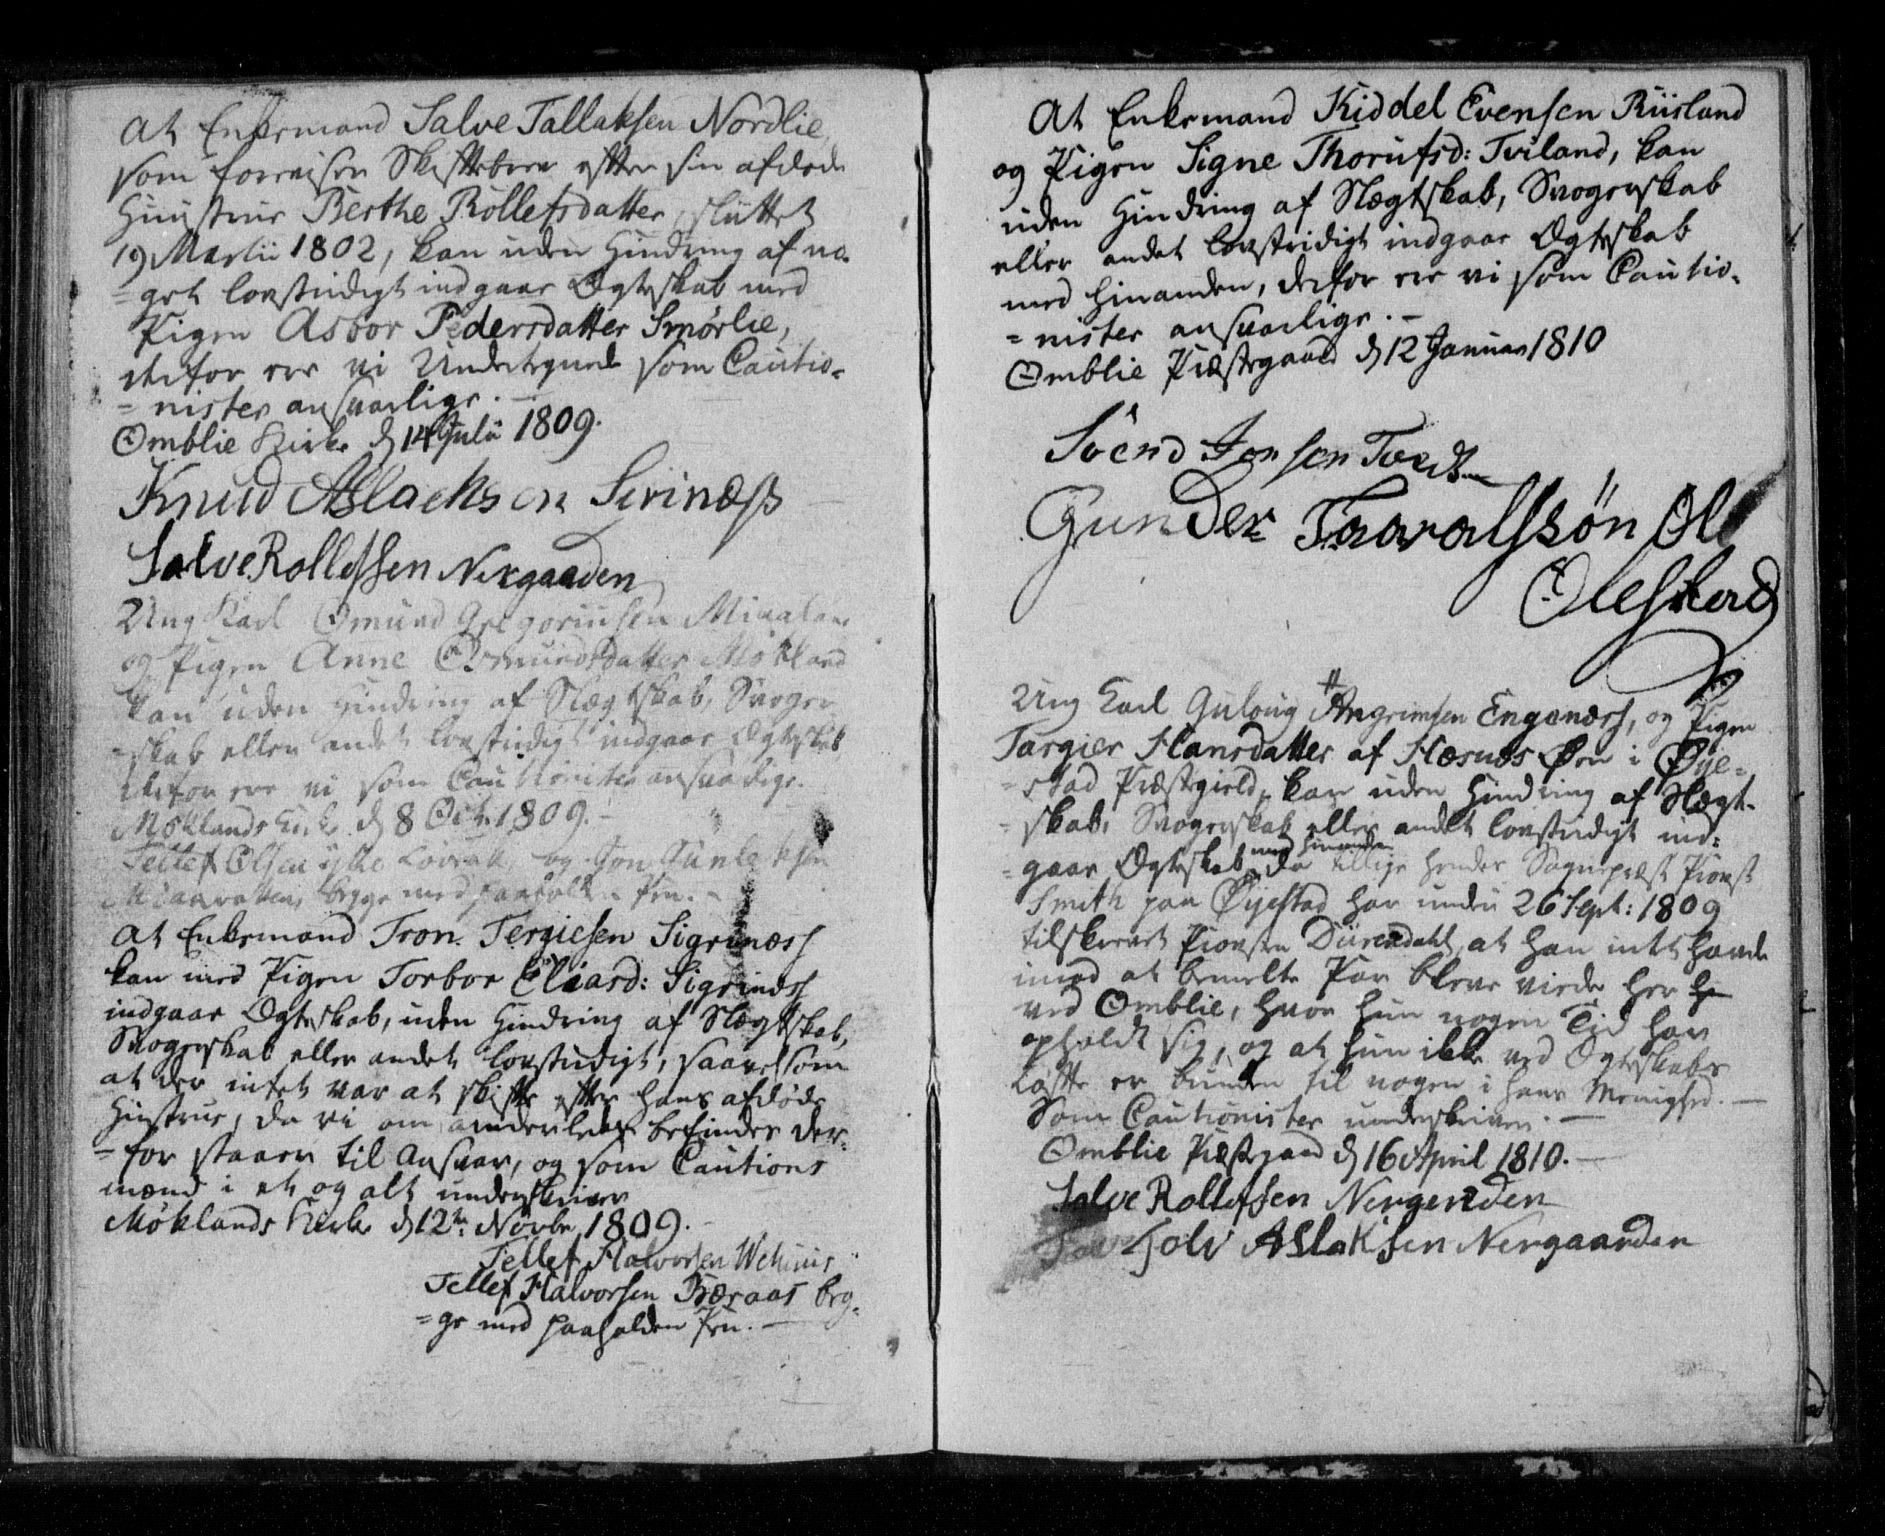 At Enkemand Salve Tallaksen Nordlie,
som foreviser Skiftebrev efter sin afdøde
Hustrue Berthe Rollefsdatter, sluttet
19 Martii 1802, kan uden Hindring af no-
=get lovstridigt indgaae Ægteskab med
Pigen Asbor Pedersdatter Smørlie,
derfor ere vi Undertegnede som Cautio-
=nister ansvarlige.
Omblie Kirke d 14 Julii 1809.
Knud Aslachsen Sirinæss
Salve Rollefsen Nergaarden
Ung Karl Omund Gregoriusen
og Pigen Anne Osmundsdatter Mökland
kan uden Hindring af Slægtskab, Svoger
=skab eller andet lovstridigt indgaae Ægteskab
derfor ere vi som Cautionister ansvarlige.
Møklands Kirke d 8 Octr 1809.
Tellef Olsen og Jon Gunleksen
begge med paaholden Pen.
At Enkemand Tron Tergiesen Sigrinæss
kan med Pigen Torbor Eliasd: Sigrinæss
indgaae Ægteskab, uden Hindring af Slægtskab,
Svogerskab eller andet lovstridigt, saavelsom
at der intet var at skifte efter hans afdøde
Hustrue, da vi om anderledes befindes der-
=for staaer til Ansvar, og som Cautions
mænd i et og alt underskriver
Møklands Kirke d 12te Novbr 1809.
Tellef Halvorsen
Tellef Halvorsen Træraas beg-
=ge med paaholden Pen.
At Enkemand Kiddel Evensen Riisland
og Pigen Signe Thorufsd: Tviland, kan
uden Hindring af Slægtskab, Svogerskab
eller andet lovstridigt indgaae Ægteskab
med hinanden, derfor ere vi som Cautio-
=nister ansvarlige.
Omblie Præstegaard d 12 Januar 1810
Svend Jensen Tvedt
Gunder Taaralssøn Ol
Olefstad
Ung Karl Gulovig Angrimsen Engenæss, og Pigen
Targier Hansdatter af Hæsnes Øen i Øye-
=stad Præstegield, kan uden Hindring af Slægt-
=skab, Svogerskab eller andet lovstridigt ind-
=gaae Ægteskab med hinanden, da tillige hendes Sognepræst Provst
Smith paa Øyestad har under 26 Sept: 1809
tilskrevet Provsten Diirendahl, at han intet havde
imod at bemelte Par bleve viede her
ved Omblie, hvor hun nogen Tid har
opholdt sig, og at hun ikke ved Ægteskabs
Løfte er bunden til nogen i hans Menighed.
Som Cautionister underskriver.
Omblie Præstegaard d 16 April 1810.
Salve Rollefsen Nergarden
Tolv Aslaksen Nergaarden